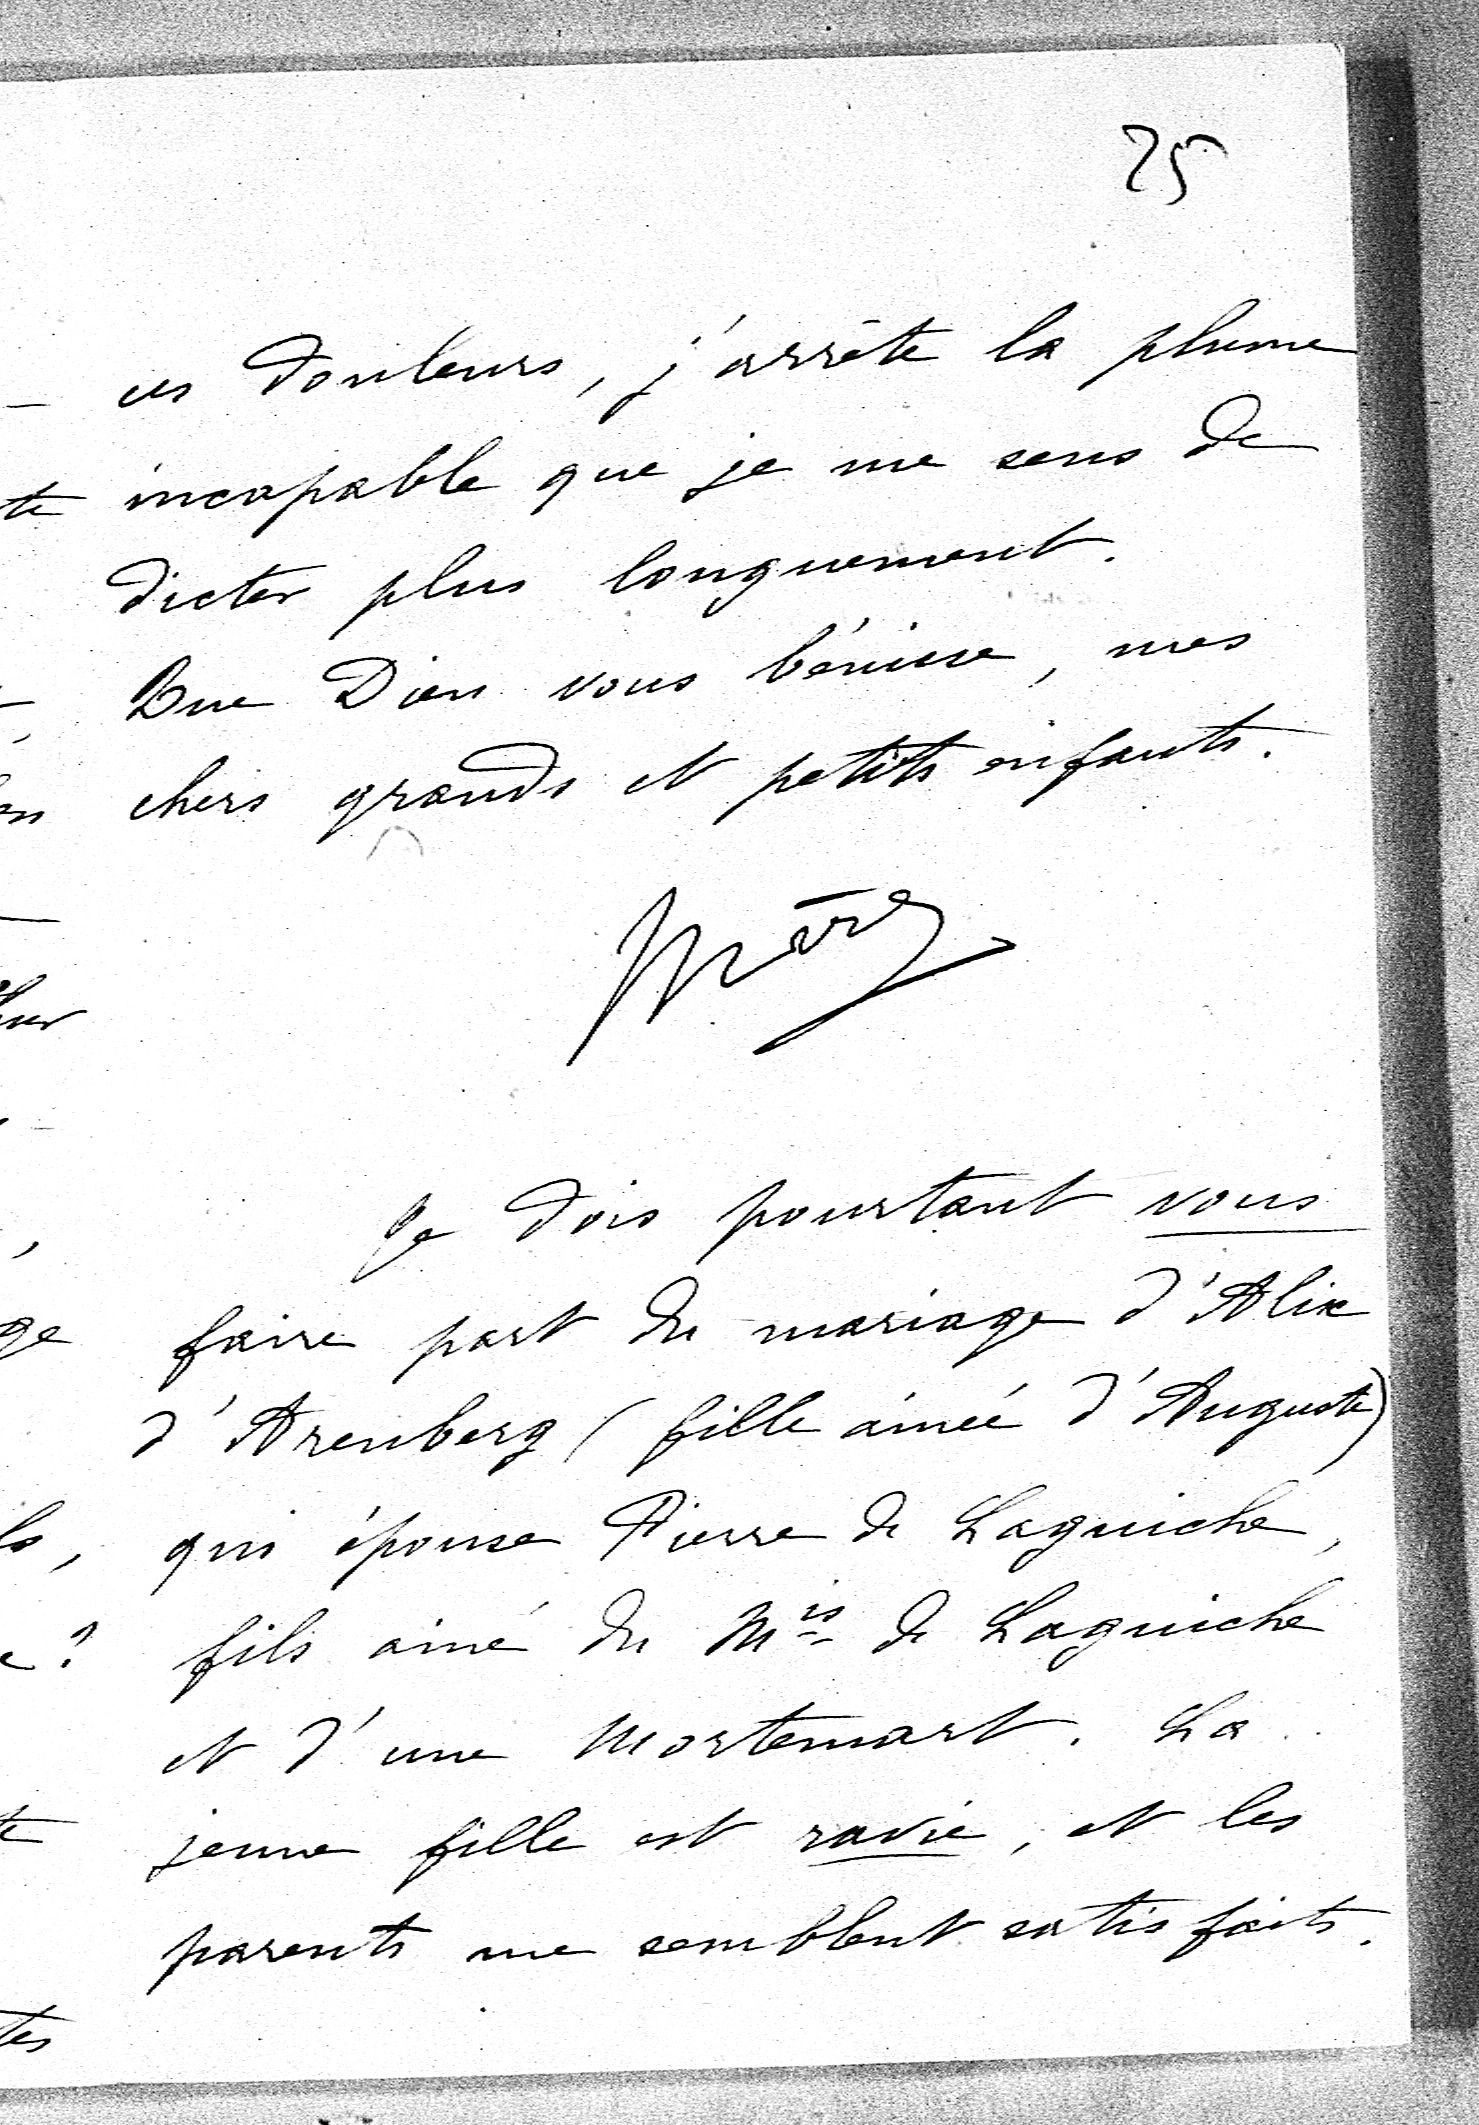 25
ces douleurs, j'arrête la plume
incapable que je me sens de
dicter plus longuement.
Que Dieu vous bénisse, mes
chers grands et petits enfants.
Mère
Je dois pourtant vous
faire part du mariage d'Alix
d'Arenberg (fille ainée d'Auguste)
qui épouse Pierre de Laguiche,
fils ainé du Mis de Laguiche
et d'une Mortemart. La
jeune fille est ravie, et les
parents me semblent satisfaits.